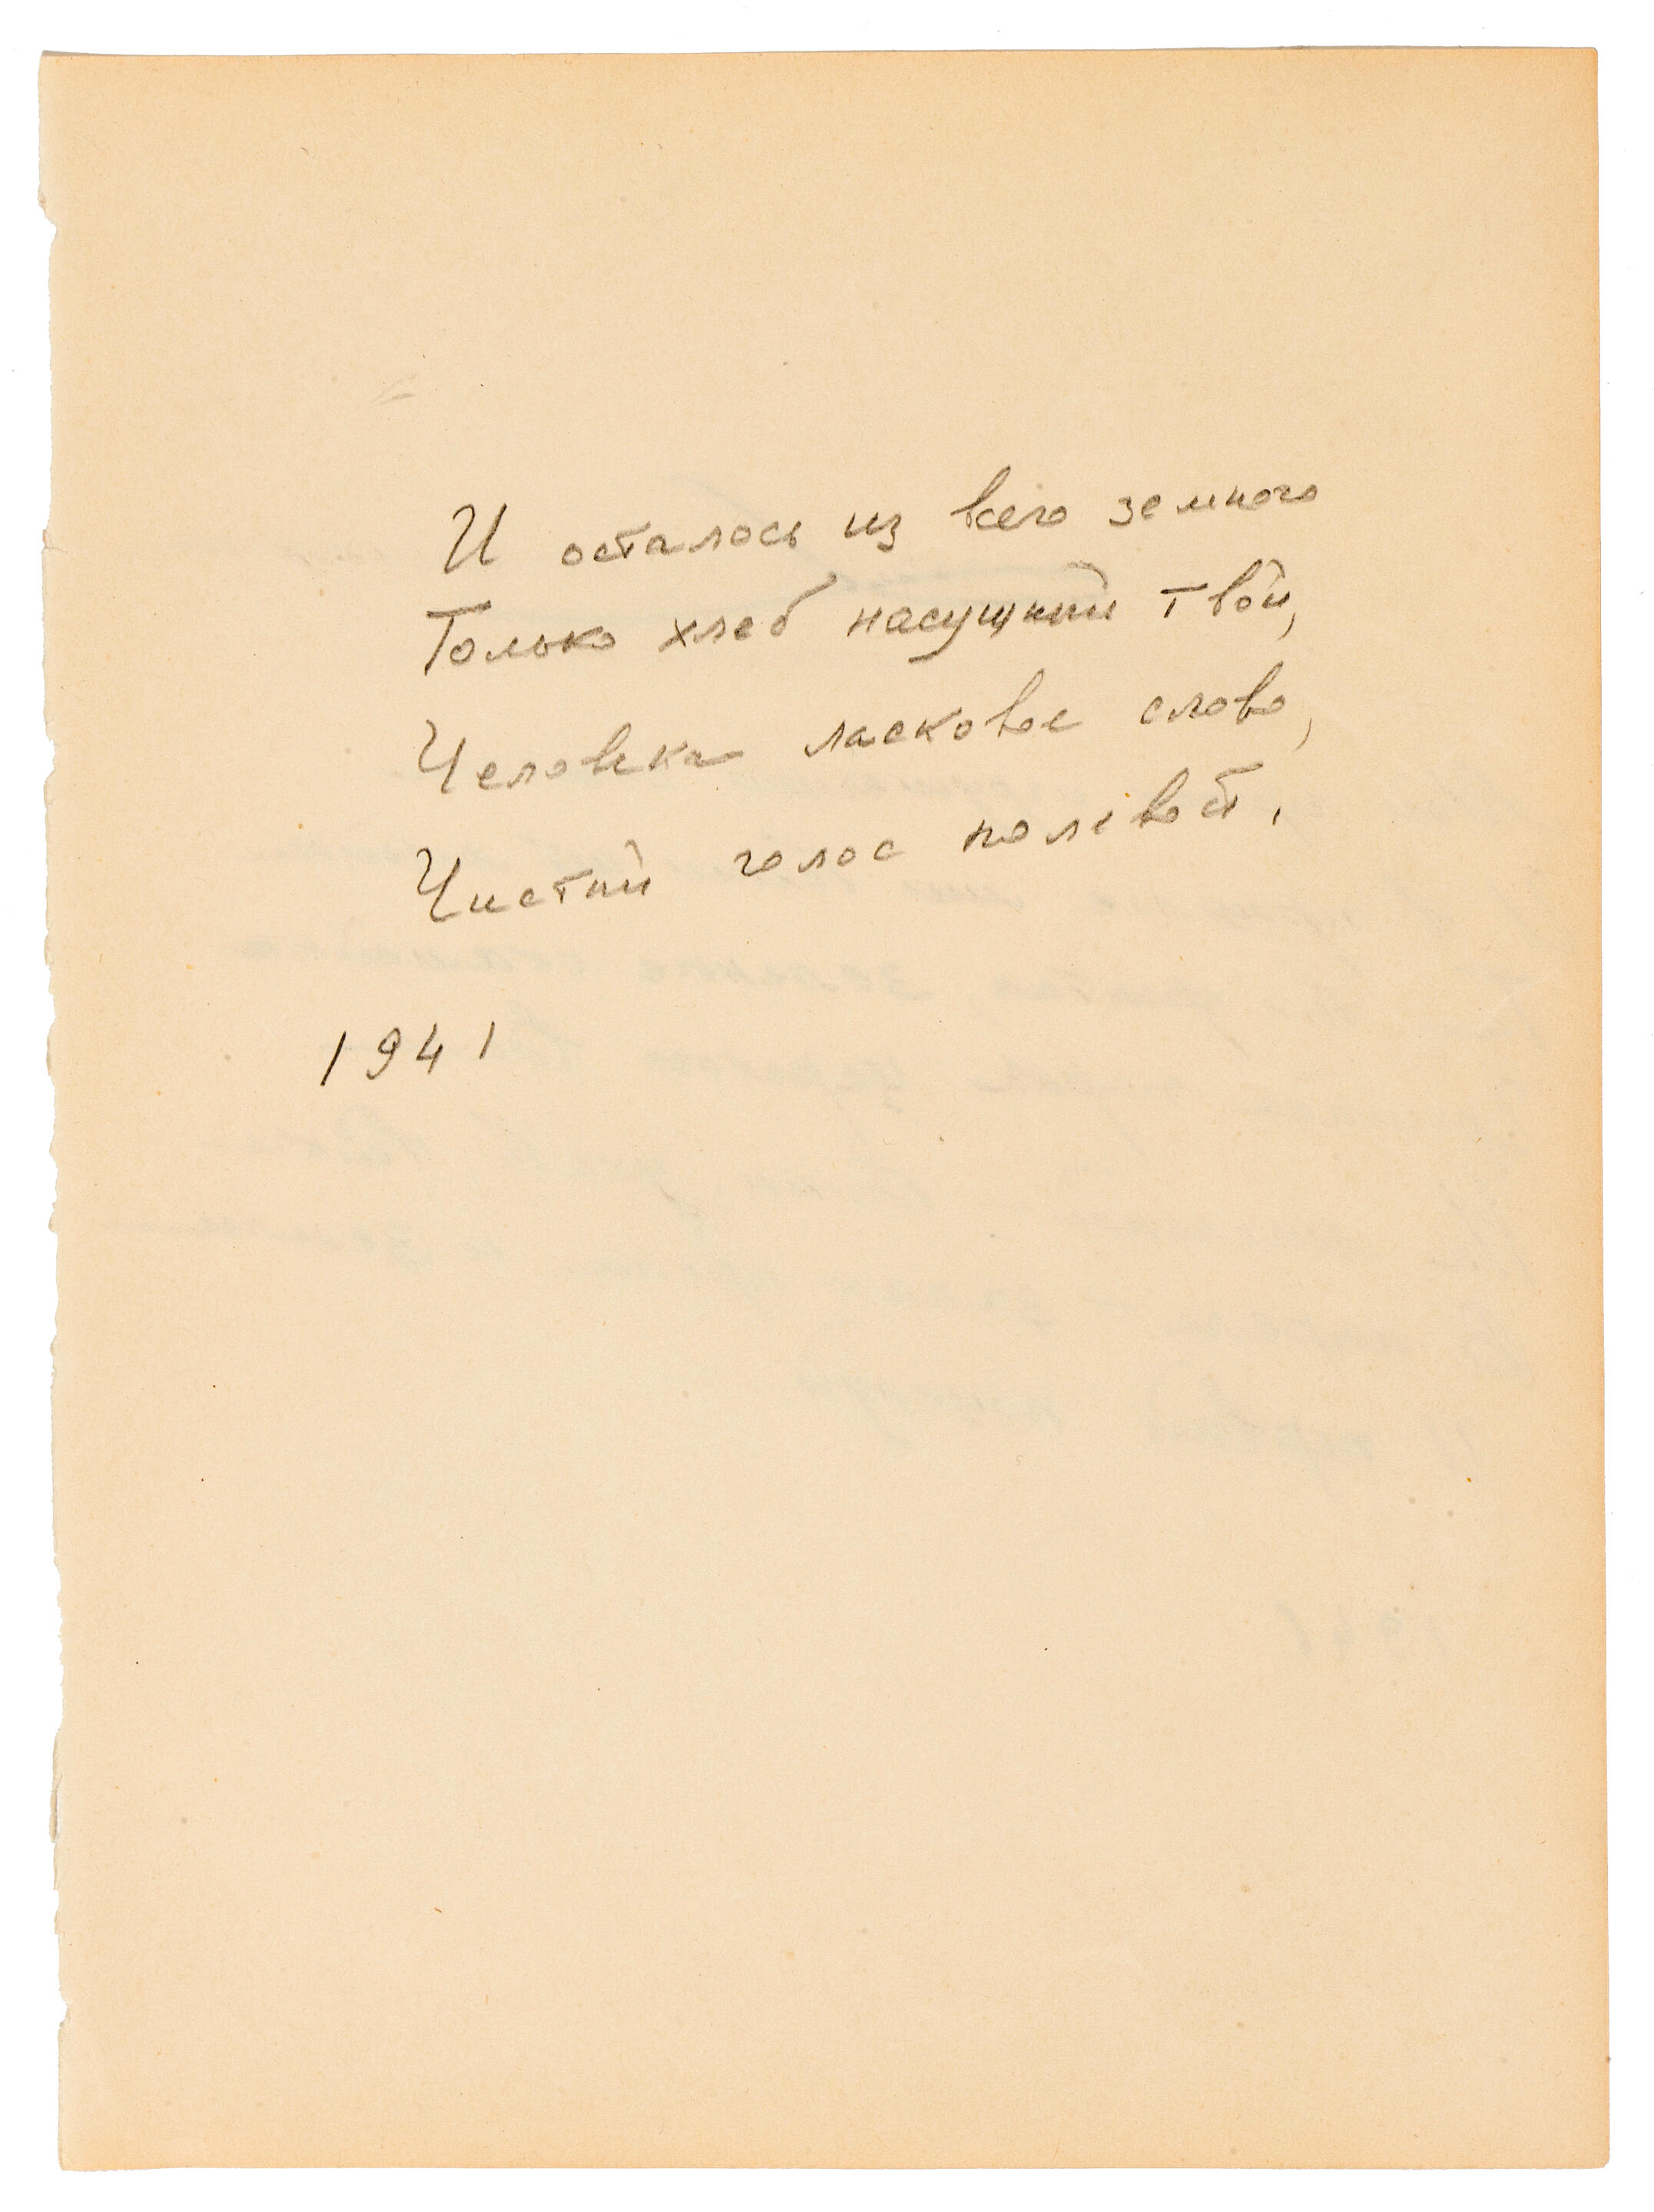 И осталось из всего земного
Только хлеб насущный твой,
Человека ласковое слово,
Чистый голос полевой.
1941